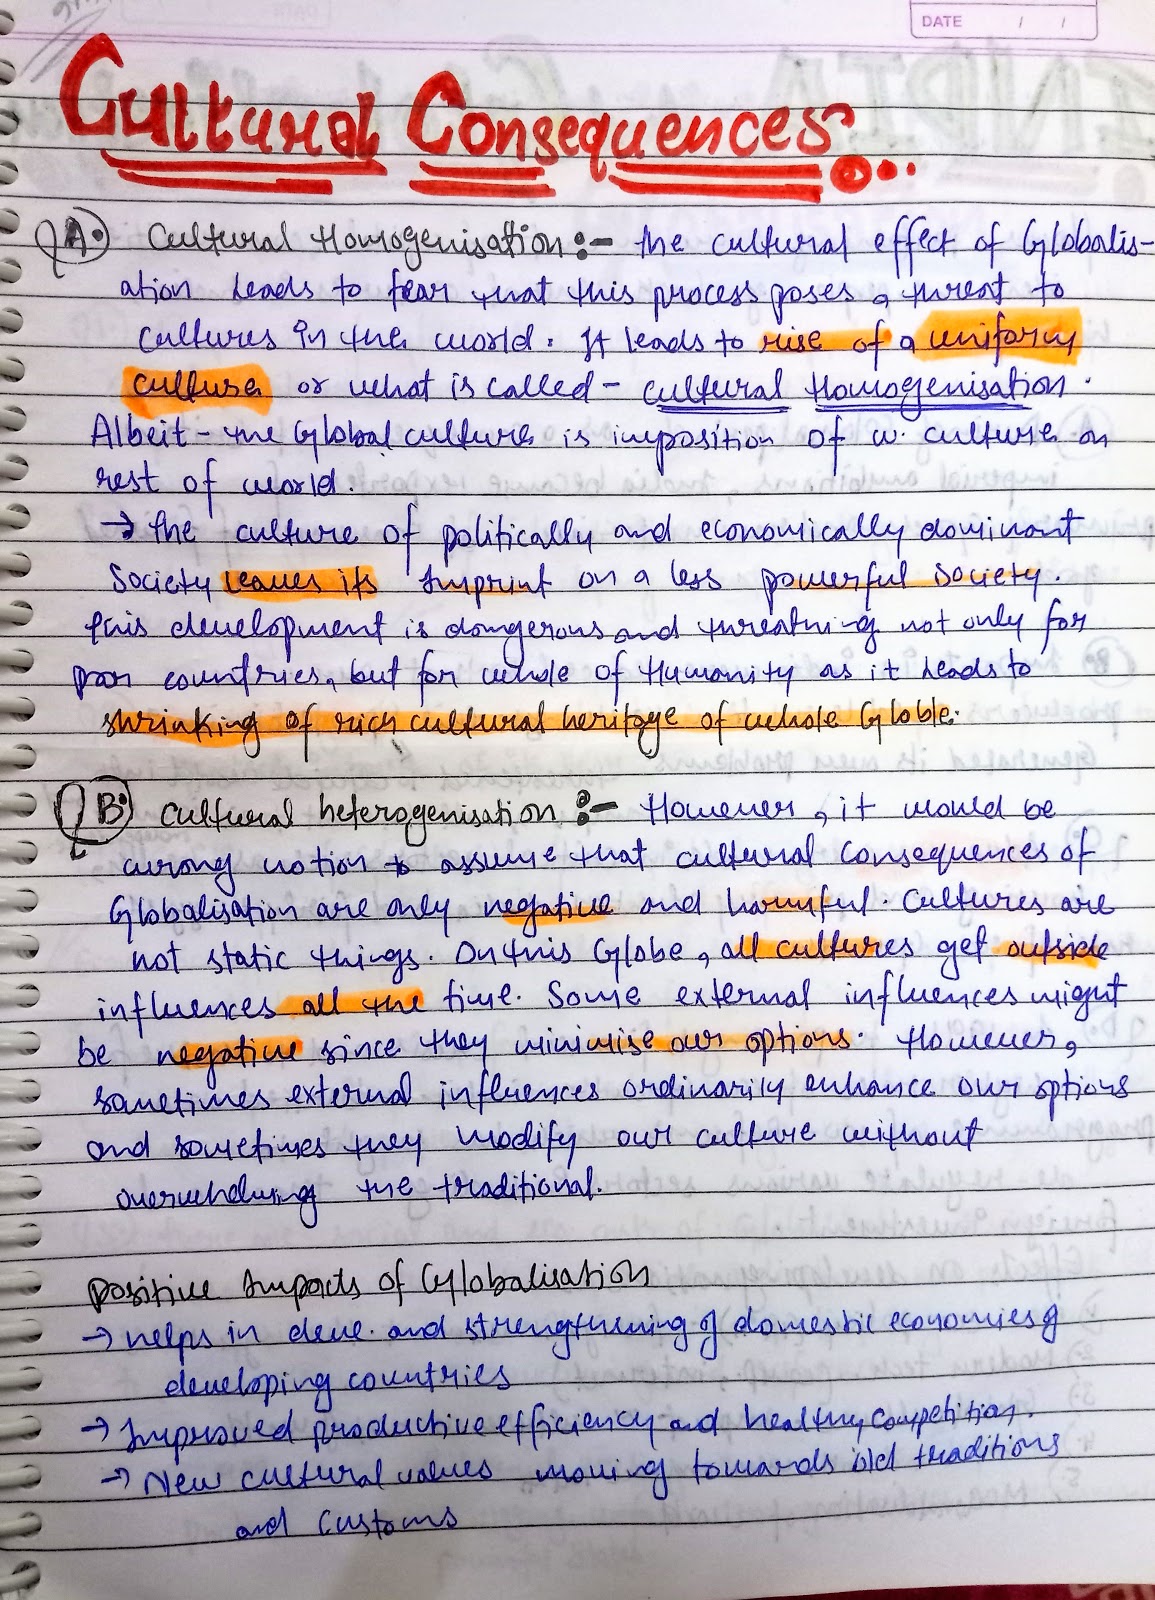 DATE / /
Cultural Consequences
A. Cultural Homogenisation :- the cultural effect of Globalis-
ation leads to fear that this process poses a threat to
cultures in the world. It leads to rise of a uniform
culture or what is called - cultural Homogenisation.
Albeit - the Global culture is imposition of w. culture on
rest of world.
→ The culture of politically and economically dominant
society leaves its Imprint on a less powerful society.
This development is dangerous and threatning not only for
poor countries, but for whole of Humanity as it leads to
shrinking of rich cultural heritage of whole Globle.
B. Cultural heterogenisation :- However, it would be
wrong notion to assume that cultural consequences of
Globalisation are only negative and harmful. Cultures are
not static things. On this Globe, all cultures get outside
influences all the time. Some external influences might
be negative since they minimise our options. However,
sometimes external influences ordinarily enhance our options
and sometimes they modify our culture without
overwhelming the traditional.
Positive Impacts of Globalisation
→ Helps in deve. and strengthening of domestic economies of
developing countries
→ Improved productive efficiency and healthy competition.
→ New cultural values moving towards old traditions
and customs